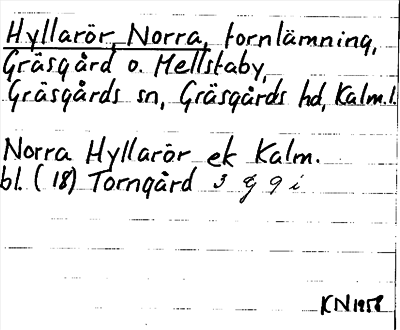 Hyllarör, Norra, fornlämning,
Gräsgård o. Mellstaby,
Gräsgårds sn, Gräsgårds hd, Kalm.l.
Norra Hyllarör ek Kalm.
bl. (18) Torngård 3 G 9 i
KN 1958